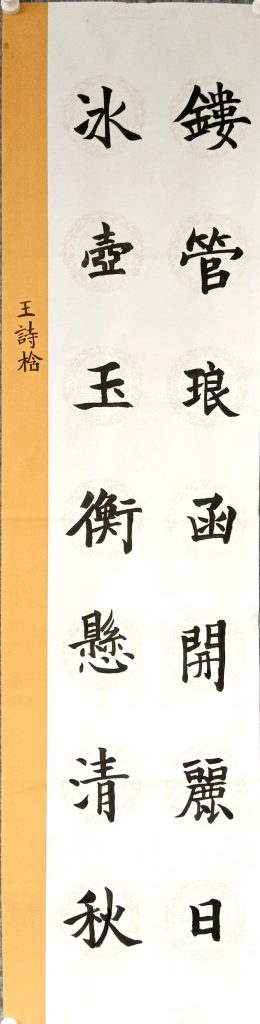 鏤管琅函開麗日
冰壺玉衡懸清秋
王詩桰